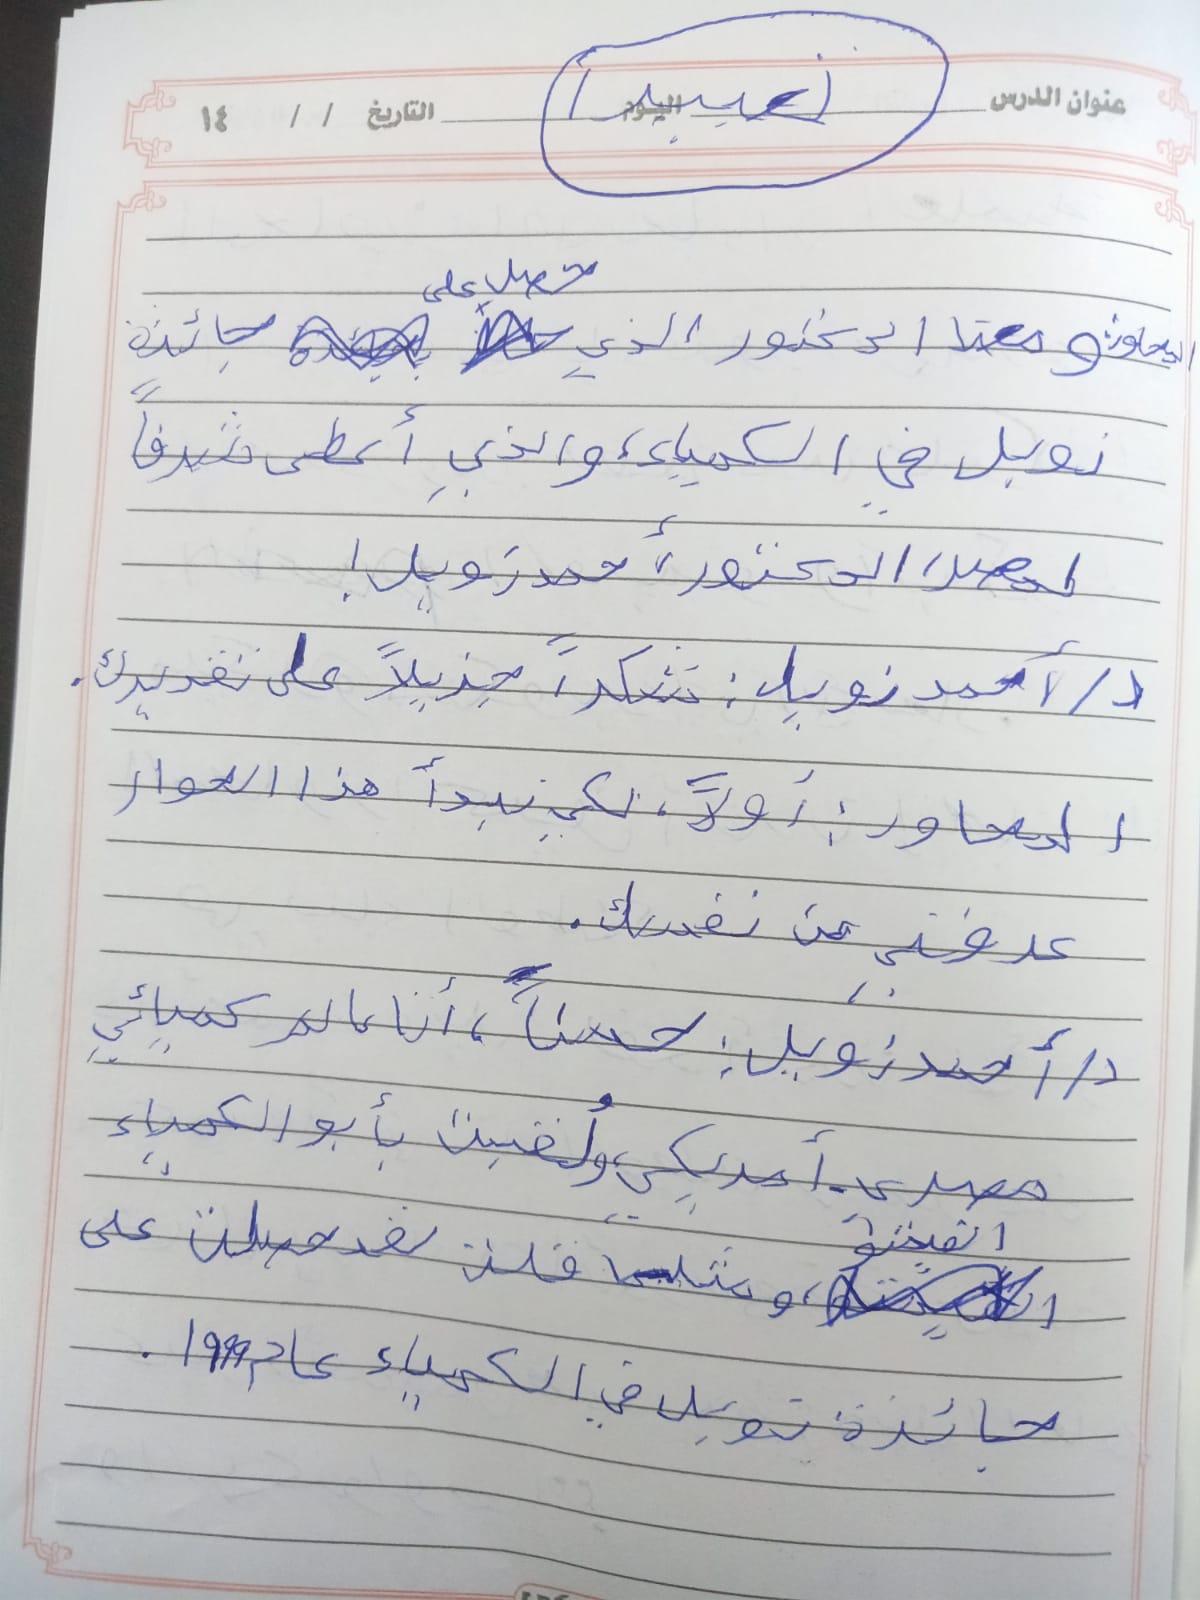 عنوان الدرس اليوم التاريخ / / ١٤
تعبير
حصل على
المحاور: ومعنا الدكتور الذي جائزة
نوبل في الكمياء، والذي أعطى شرفاً
لمصر، الدكتور، أحمد زويل!
د/أحمد زويل: شكراً جزيلاً على تقديرك.
المحاور: أولاً، لكي نبدأ هذا الحوار
عرفني عن نفسك.
د/أحمد زويل: حسناً، أنا عالم كميائي
مصري-أمريكي، ولُقبت بأبو الكمياء
، ومثلما قلت لقد حصلت على
جائزة نوبل في الكمياء عام 1999.